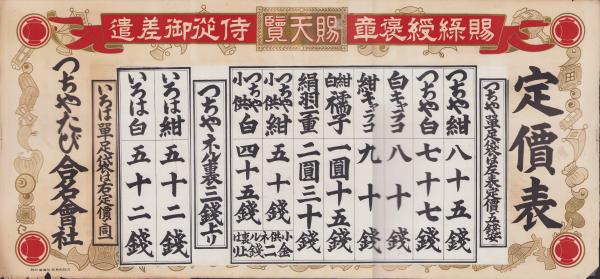 賜綠綬褒章
賜天覽
侍從御差遣
定價表
つちや單足袋は左表定價五錢安
つちや紺 八十五錢
つちや白 七十七錢
白キャラコ 八十錢
紺キャラコ 九十錢
紺白繻子 一圓十五錢
絹羽二重 二圓三十錢
つちや小供紺 五十錢
小供ネル裏は二錢上り
つちや小供白 四十五錢
つちやネル裏三錢上り
いろは紺 五十二錢
いろは白 五十二錢
いろは單足袋は右定價ニ同一
つちやたび合名會社